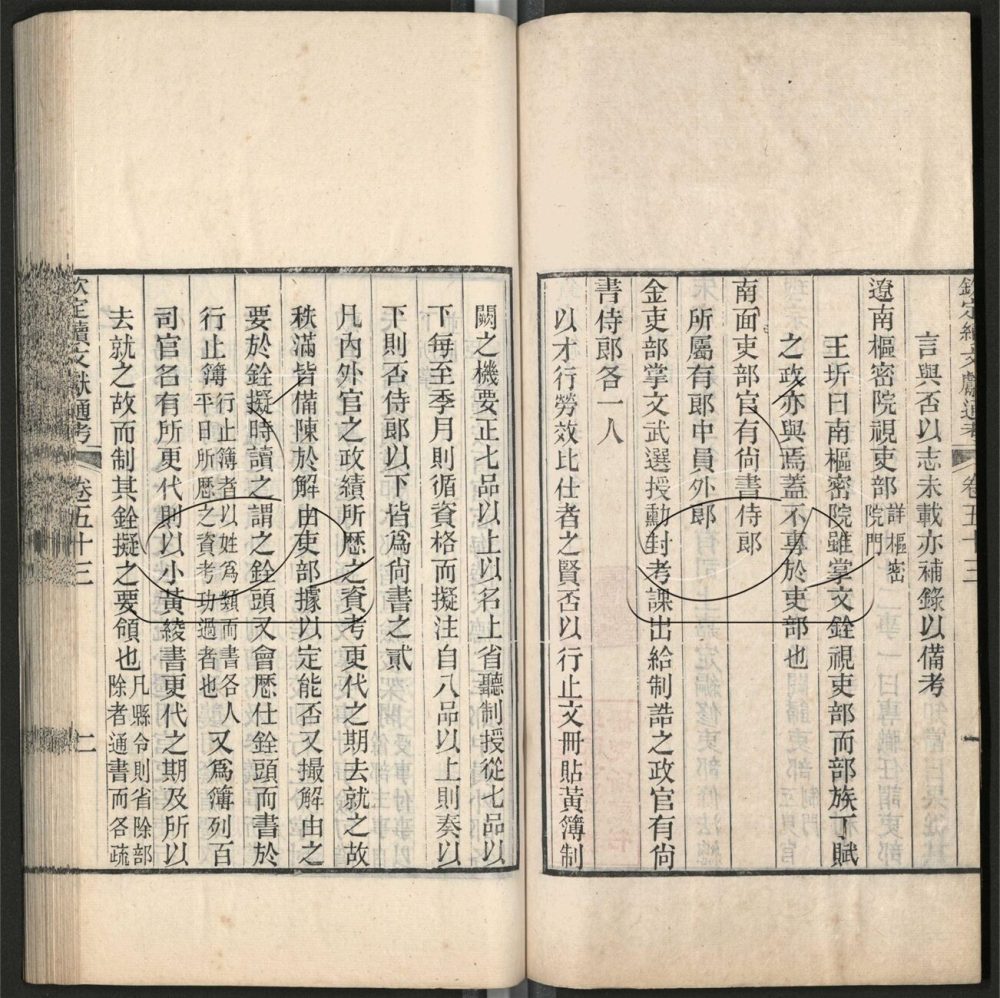 欽定續文獻通考 卷五十三 一
言與否以志未載亦補錄以備考
遼南樞密院視吏部詳樞密院門
王圻曰南樞密院雖掌文銓視吏部而部族丁賦
之政亦與焉蓋不專於吏部也
南面吏部官有尙書侍郎
所屬有郎中員外郎
金吏部掌文武選授勳封考課出給制誥之政官有尙
書侍郎各一人
以才行勞效比仕者之賢否以行止文冊貼黃簿制
闕之機要正七品以上以名上省聽制授從七品以
下每至季月則循資格而擬注自八品以上則奏以
下則否侍郎以下皆爲尙書之貳
凡內外官之政績所歷之資考更代之期去就之故
秩滿皆備陳於解由吏部據以定能否又撮解由之
要於銓擬時讀之謂之銓頭又會歷仕銓頭而書於
行止簿行止簿者以姓爲類而書各人平日所歷之資考功過者也又爲簿列百
司官名有所更代則以小黃綾書更代之期及所以
去就之故而制其銓擬之要領也凡縣令則省除部除者通書而各疏
欽定續文獻通考 卷五十三 二